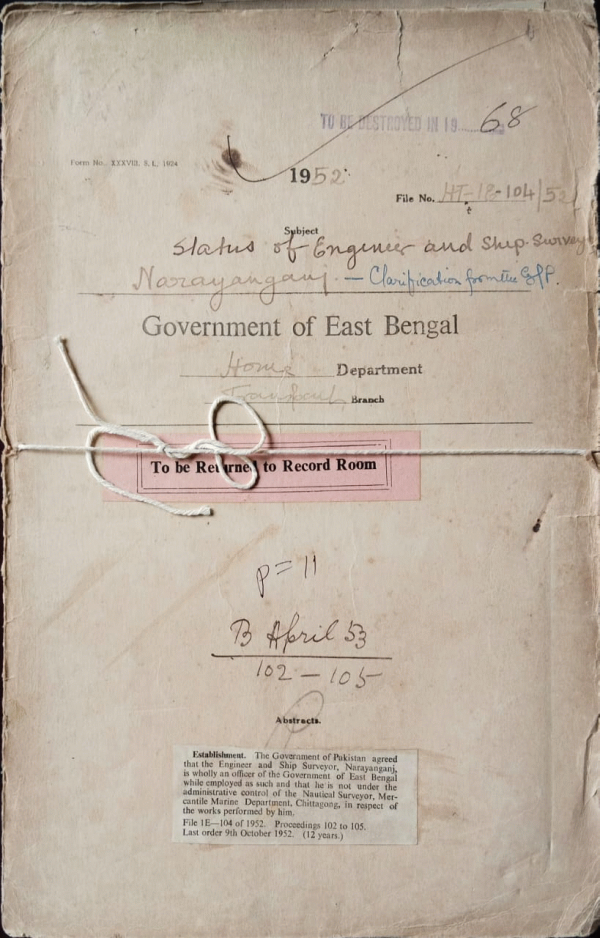 TO BE DESTROYED IN 19 68
Form No. XXXVIII. S. I., 1924
1952
File No. HT-1E-104/52
Subject
Status of Engineer and Ship Survey
Narayanganj. — Clarification from the G.o.P.
Government of East Bengal
Home Department
Transport Branch
To be Returned to Record Room
P = 11
B April 53
102 — 105
Abstracts.
Establishment. The Government of Pakistan agreed
that the Engineer and Ship Surveyor, Narayanganj,
is wholly an officer of the Government of East Bengal
while employed as such and that he is not under the
administrative control of the Nautical Surveyor, Mer-
cantile Marine Department, Chittagong, in respect of
the works performed by him.
File 1E—104 of 1952. Proceedings 102 to 105.
Last order 9th October 1952. (12 years.)